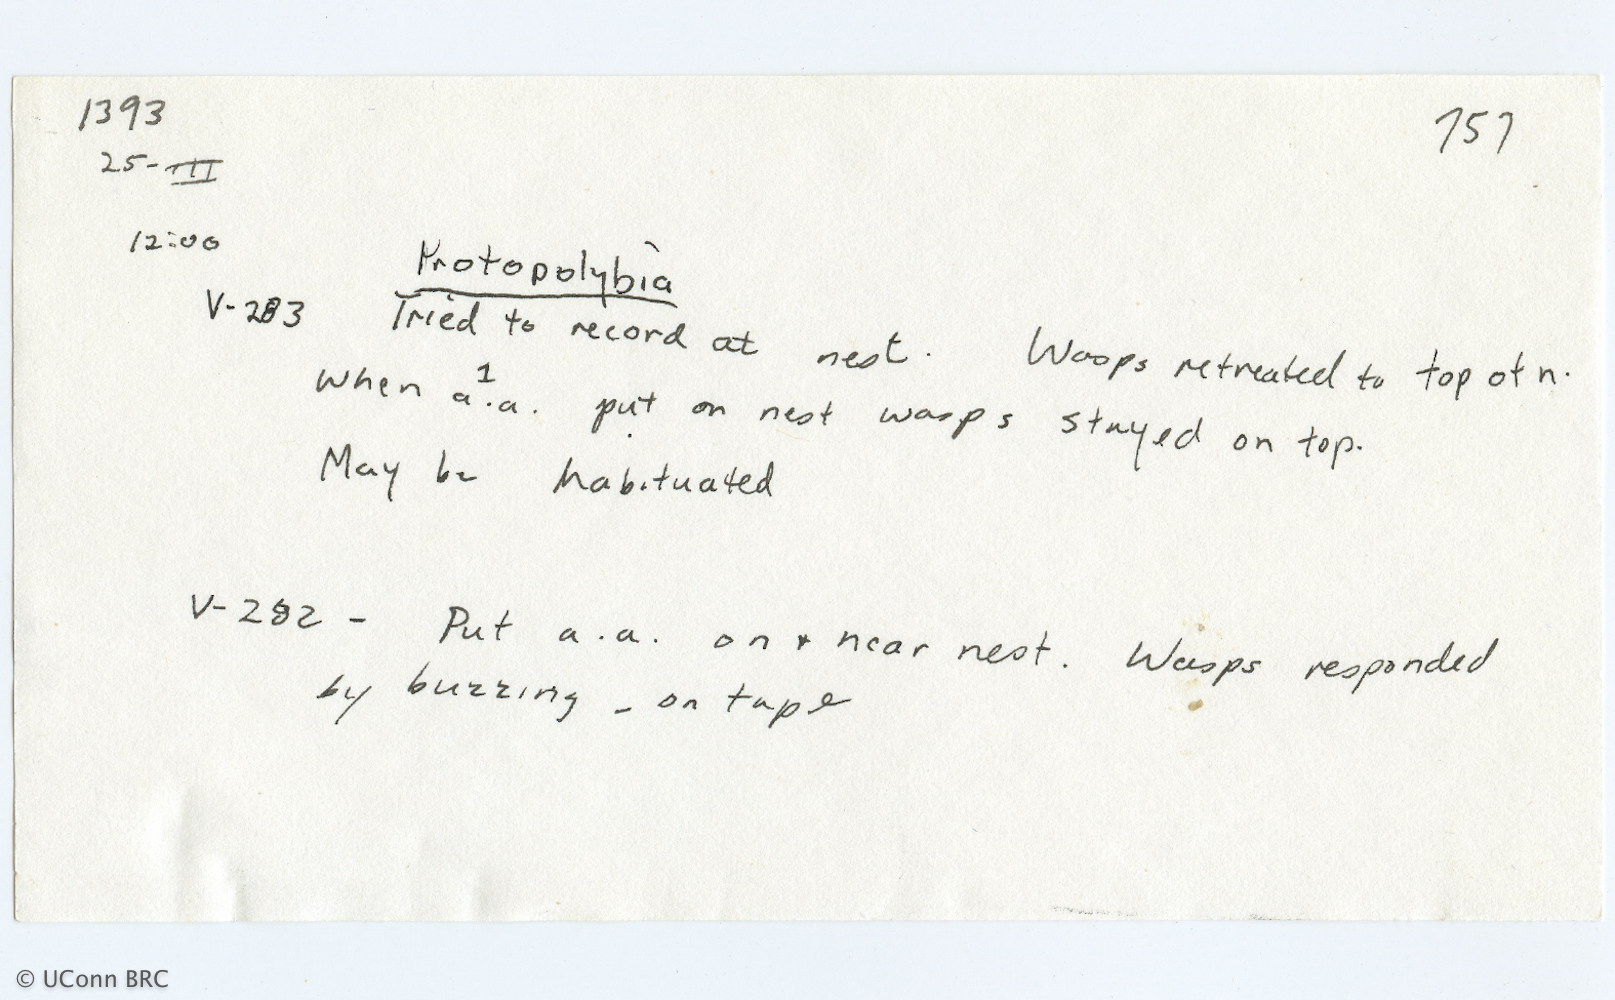 1393
757
25-III
12:00
Protopolybia
V-283 Tried to record at nest. Wasps retreated to top of n.
When 1 a.a. put on nest wasps stayed on top.
May be habituated
V-282 - Put a.a. on + near nest. Wasps responded
by buzzing - on tape
© UConn BRC